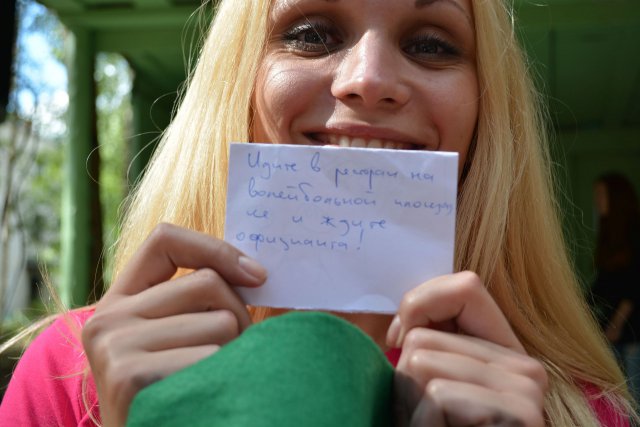 Идите в ресторан на
волейбольной площад
ке и ждите
официанта!